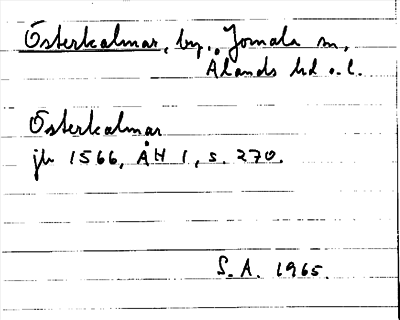 Österkalmar, by., Jomala sn,
Ålands hd o. l.
Österkalmar
jb 1566, ÅH 1, s. 270.
S. A. 1965.